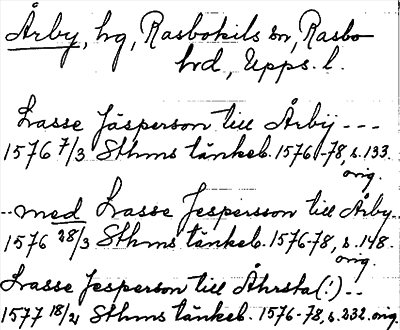 Årby, hg, Rasbokils sn, Rasbo
hd, Upps. l.
Lasse Jäsperson till Årbij - - -
1576 7/3 Sthms tänkeb. 1576-78, s. 133.
orig.
.. med Lasse Jespersson till Årby..
1576 28/3 Sthms tänkeb. 1576-78, s. 148.
orig.
Lasse Jesperson till Åhrsta(!) - -
1577 18/2 Sthms tänkeb. 1576-78, s. 232. orig.